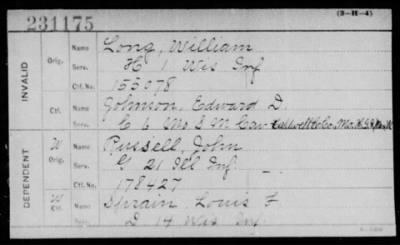 231175
(3-H-4)
INVALID
Orig.
Name Long, William
Serv. H 1 Wis Inf
Ctf. No. 155078
Ctf.
Name Johnson, Edward D.
Serv. C 6 Mo S M Cav
DEPENDENT
W
Orig.
Name Russell, John
Serv. G 21 Ill Inf
Ctf. No. 178427
W
Ctf.
Name Sprain, Louis F
D 14 Wis Inf